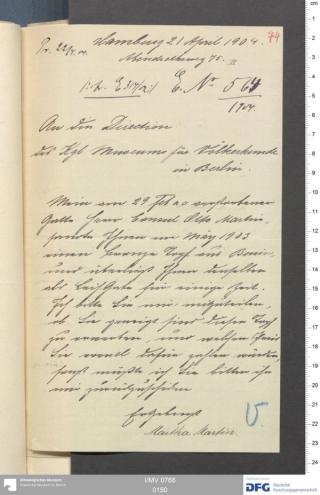 Hamburg 21 April 1904. 74
Pr. 22/4. 04.
Abendrothsweg 75. II
E. No 564
1904.
An die Direction
des Kgl Museums für Völkerkunde
in Berlin.
Mein am 29 Feb a.c verstorbener
Gatte Herr Consul Otto Martin,
sandte Ihnen im März 1903
einen Bronze Topf aus Benin,
und überließ Ihnen denselben
als Leihgabe für einige Zeit.
Ich bitte Sie mir mitzuteilen,
ob Sie geneigt sind diesen Topf
zu erwerben, und welchen Preis
Sie eventl dafür zahlen würden,
sonst müßte ich Sie bitten ihn
mir zurückzuschicken
Ergebenst
Martha Martin.
V.
Ethnologisches Museum
Staatliche Museen zu Berlin
I/MV 0766
0150
DFG
Deutsche
Forschungsgemeinschaft